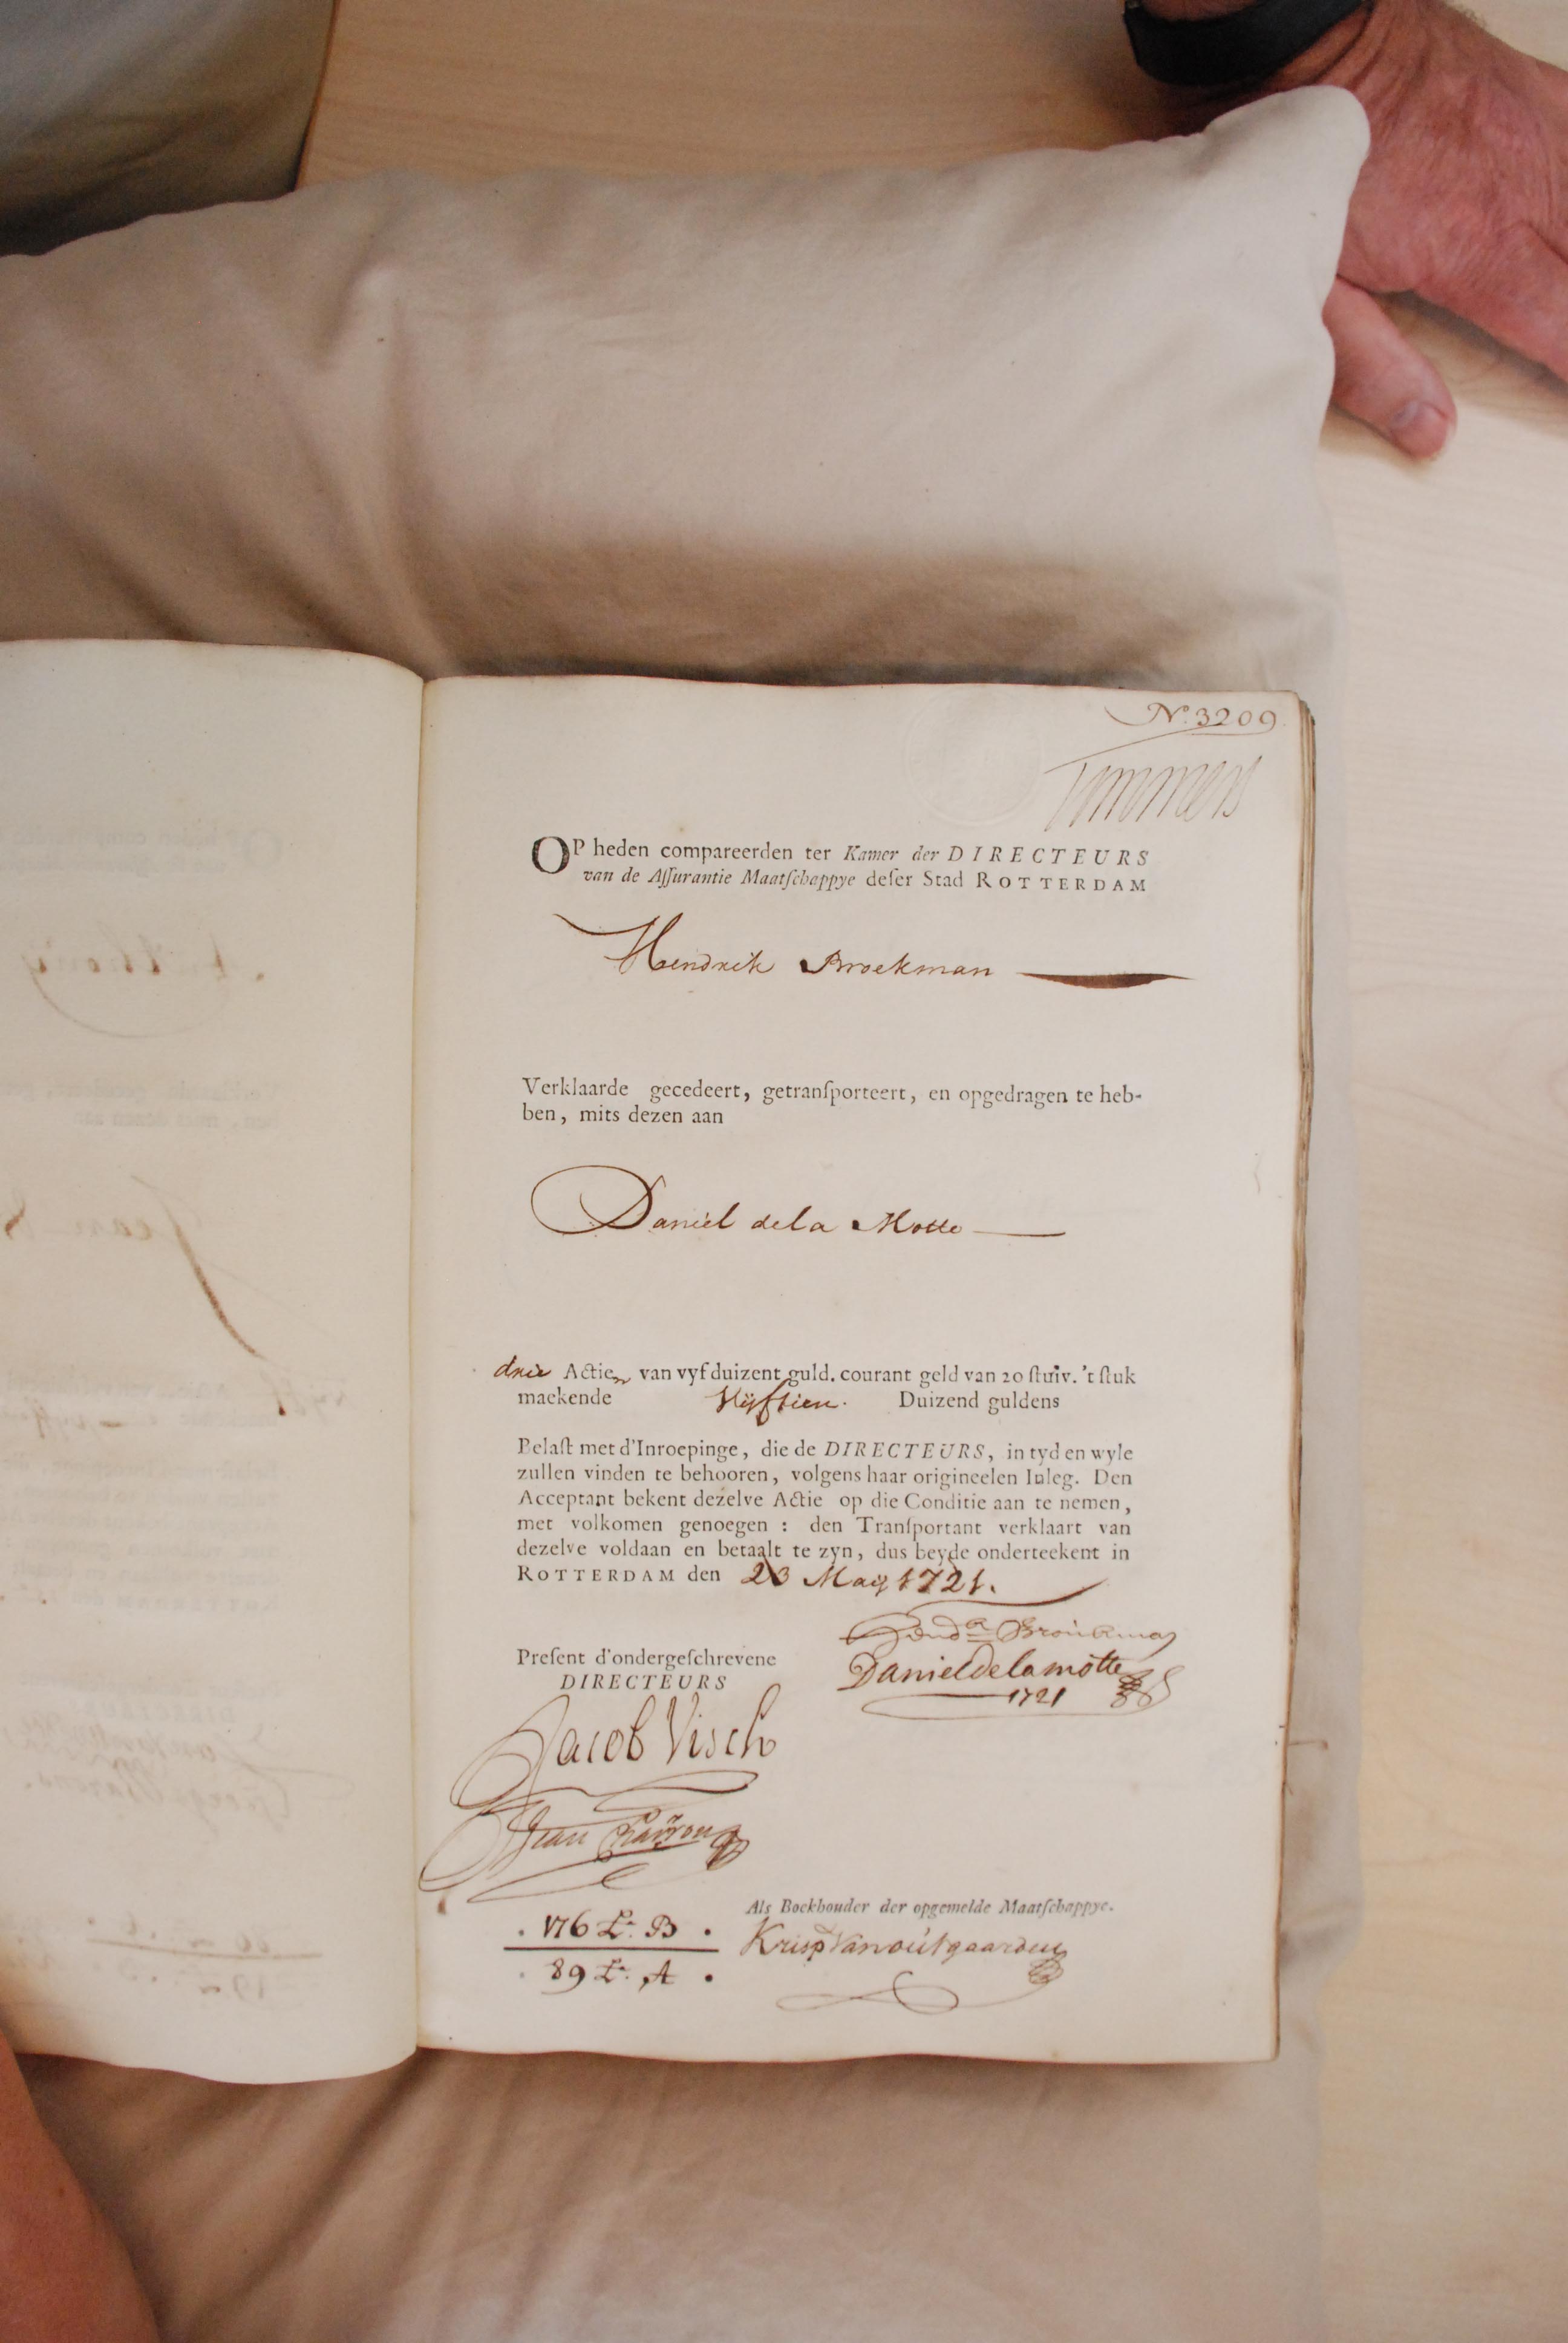 N.º 3209
Timmers
OP heden compareerden ter Kamer der DIRECTEURS
van de Aſſurantie Maatſchappye deſer Stad ROTTERDAM
Hendrik Broekman
Verklaarde gecedeert, getranſporteert, en opgedragen te heb-
ben, mits dezen aan
Daniel de la Motte
drie Actien van vyf duizent guld. courant geld van 20 ſtuiv. 't ſtuk
maekende Vijftien. Duizend guldens
Belaſt met d'Inroepinge, die de DIRECTEURS, in tyd en wyle
zullen vinden te behooren, volgens haar origineelen Inleg. Den
Acceptant bekent dezelve Actie op die Conditie aan te nemen,
met volkomen genoegen : den Tranſportant verklaart van
dezelve voldaan en betaalt te zyn, dus beyde onderteekent in
ROTTERDAM den 23 Maij 1721.
Hendk Broükman
Daniel de lamotte
1721
Preſent d'ondergeſchrevene
DIRECTEURS
Jacob Visch
Jean
Als Boekhouder der opgemelde Maatſchappye.
Krisp Vanoutgaarden
176 Lª. B
89 Lª. A